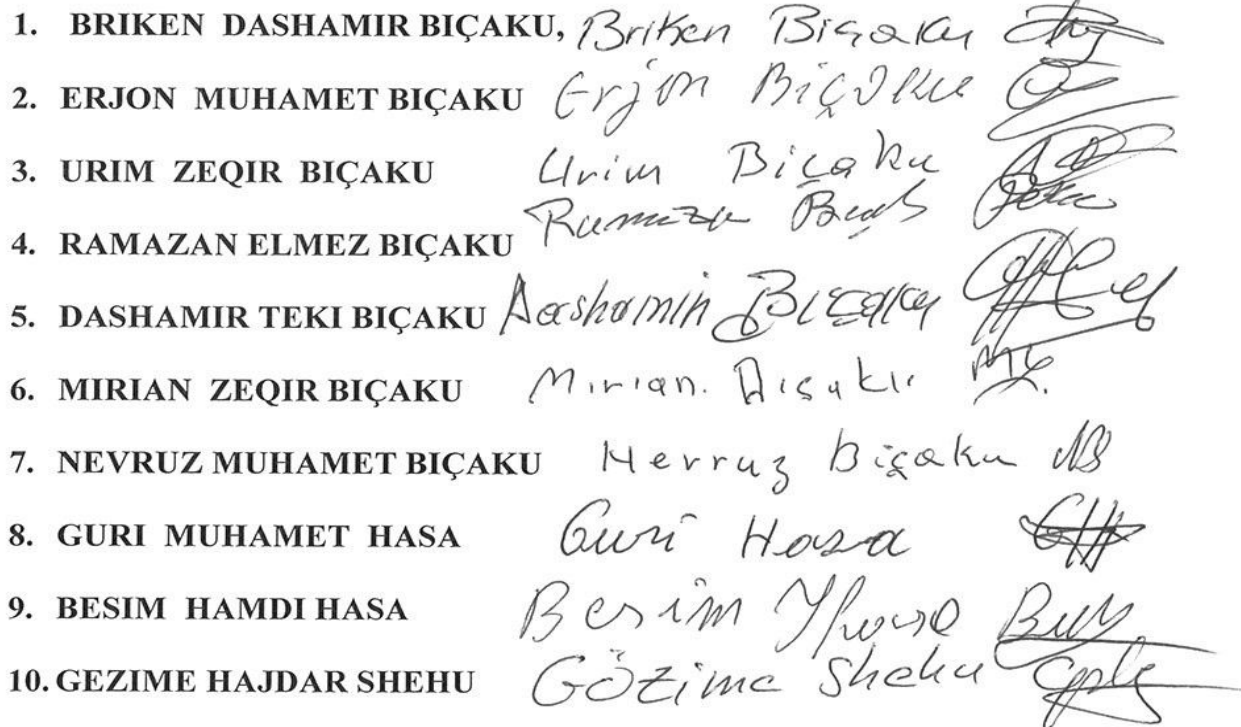 1. BRIKEN DASHAMIR BIÇAKU, Briken Biçaku
2. ERJON MUHAMET BIÇAKU Erjon Biçaku
3. URIM ZEQIR BIÇAKU Urim Biçaku
4. RAMAZAN ELMEZ BIÇAKU
5. DASHAMIR TEKI BIÇAKU Dashamir Biçaku
6. MIRIAN ZEQIR BIÇAKU Mirian. Biçaku
7. NEVRUZ MUHAMET BIÇAKU Nevruz Biçaku NB
8. GURI MUHAMET HASA Guri Hasa GH
9. BESIM HAMDI HASA Besim Hasa
10. GEZIME HAJDAR SHEHU Gëzime Shehu